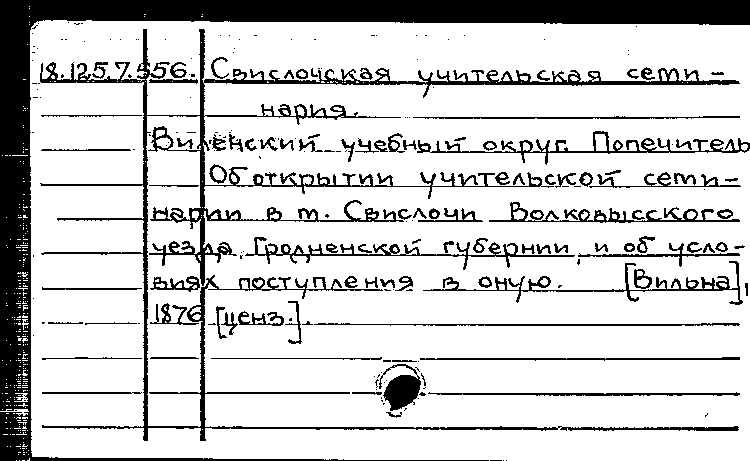 18.125.7.556. Свислочская учительская семи-
нария.
Виленский учебный округ. Попечитель
Об открытии учительской семи-
нарии в м. Свислочи Волковысского
уезда, Гродненской губернии, и об усло-
виях поступления в оную. [Вильна],
1876 [ценз.].